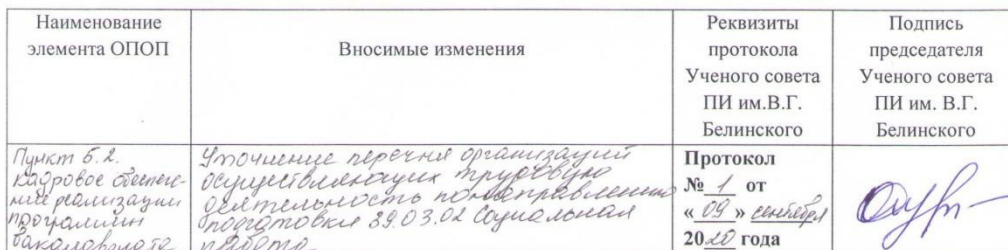 Наименование
элемента ОПОП
Вносимые изменения
Реквизиты
протокола
Ученого совета
ПИ им.В.Г.
Белинского
Подпись
председателя
Ученого совета
ПИ им. В.Г.
Белинского
Пункт 5.2.
кадровое обеспече-
ние реализации
программы
бакалавриата
Уточнение перечня организаций
осуществляющих трудовую
деятельность по направлению
подготовки 39.03.02 Социальная
работа.
Протокол
№ 1 от
« 09 » сентября
2020 года